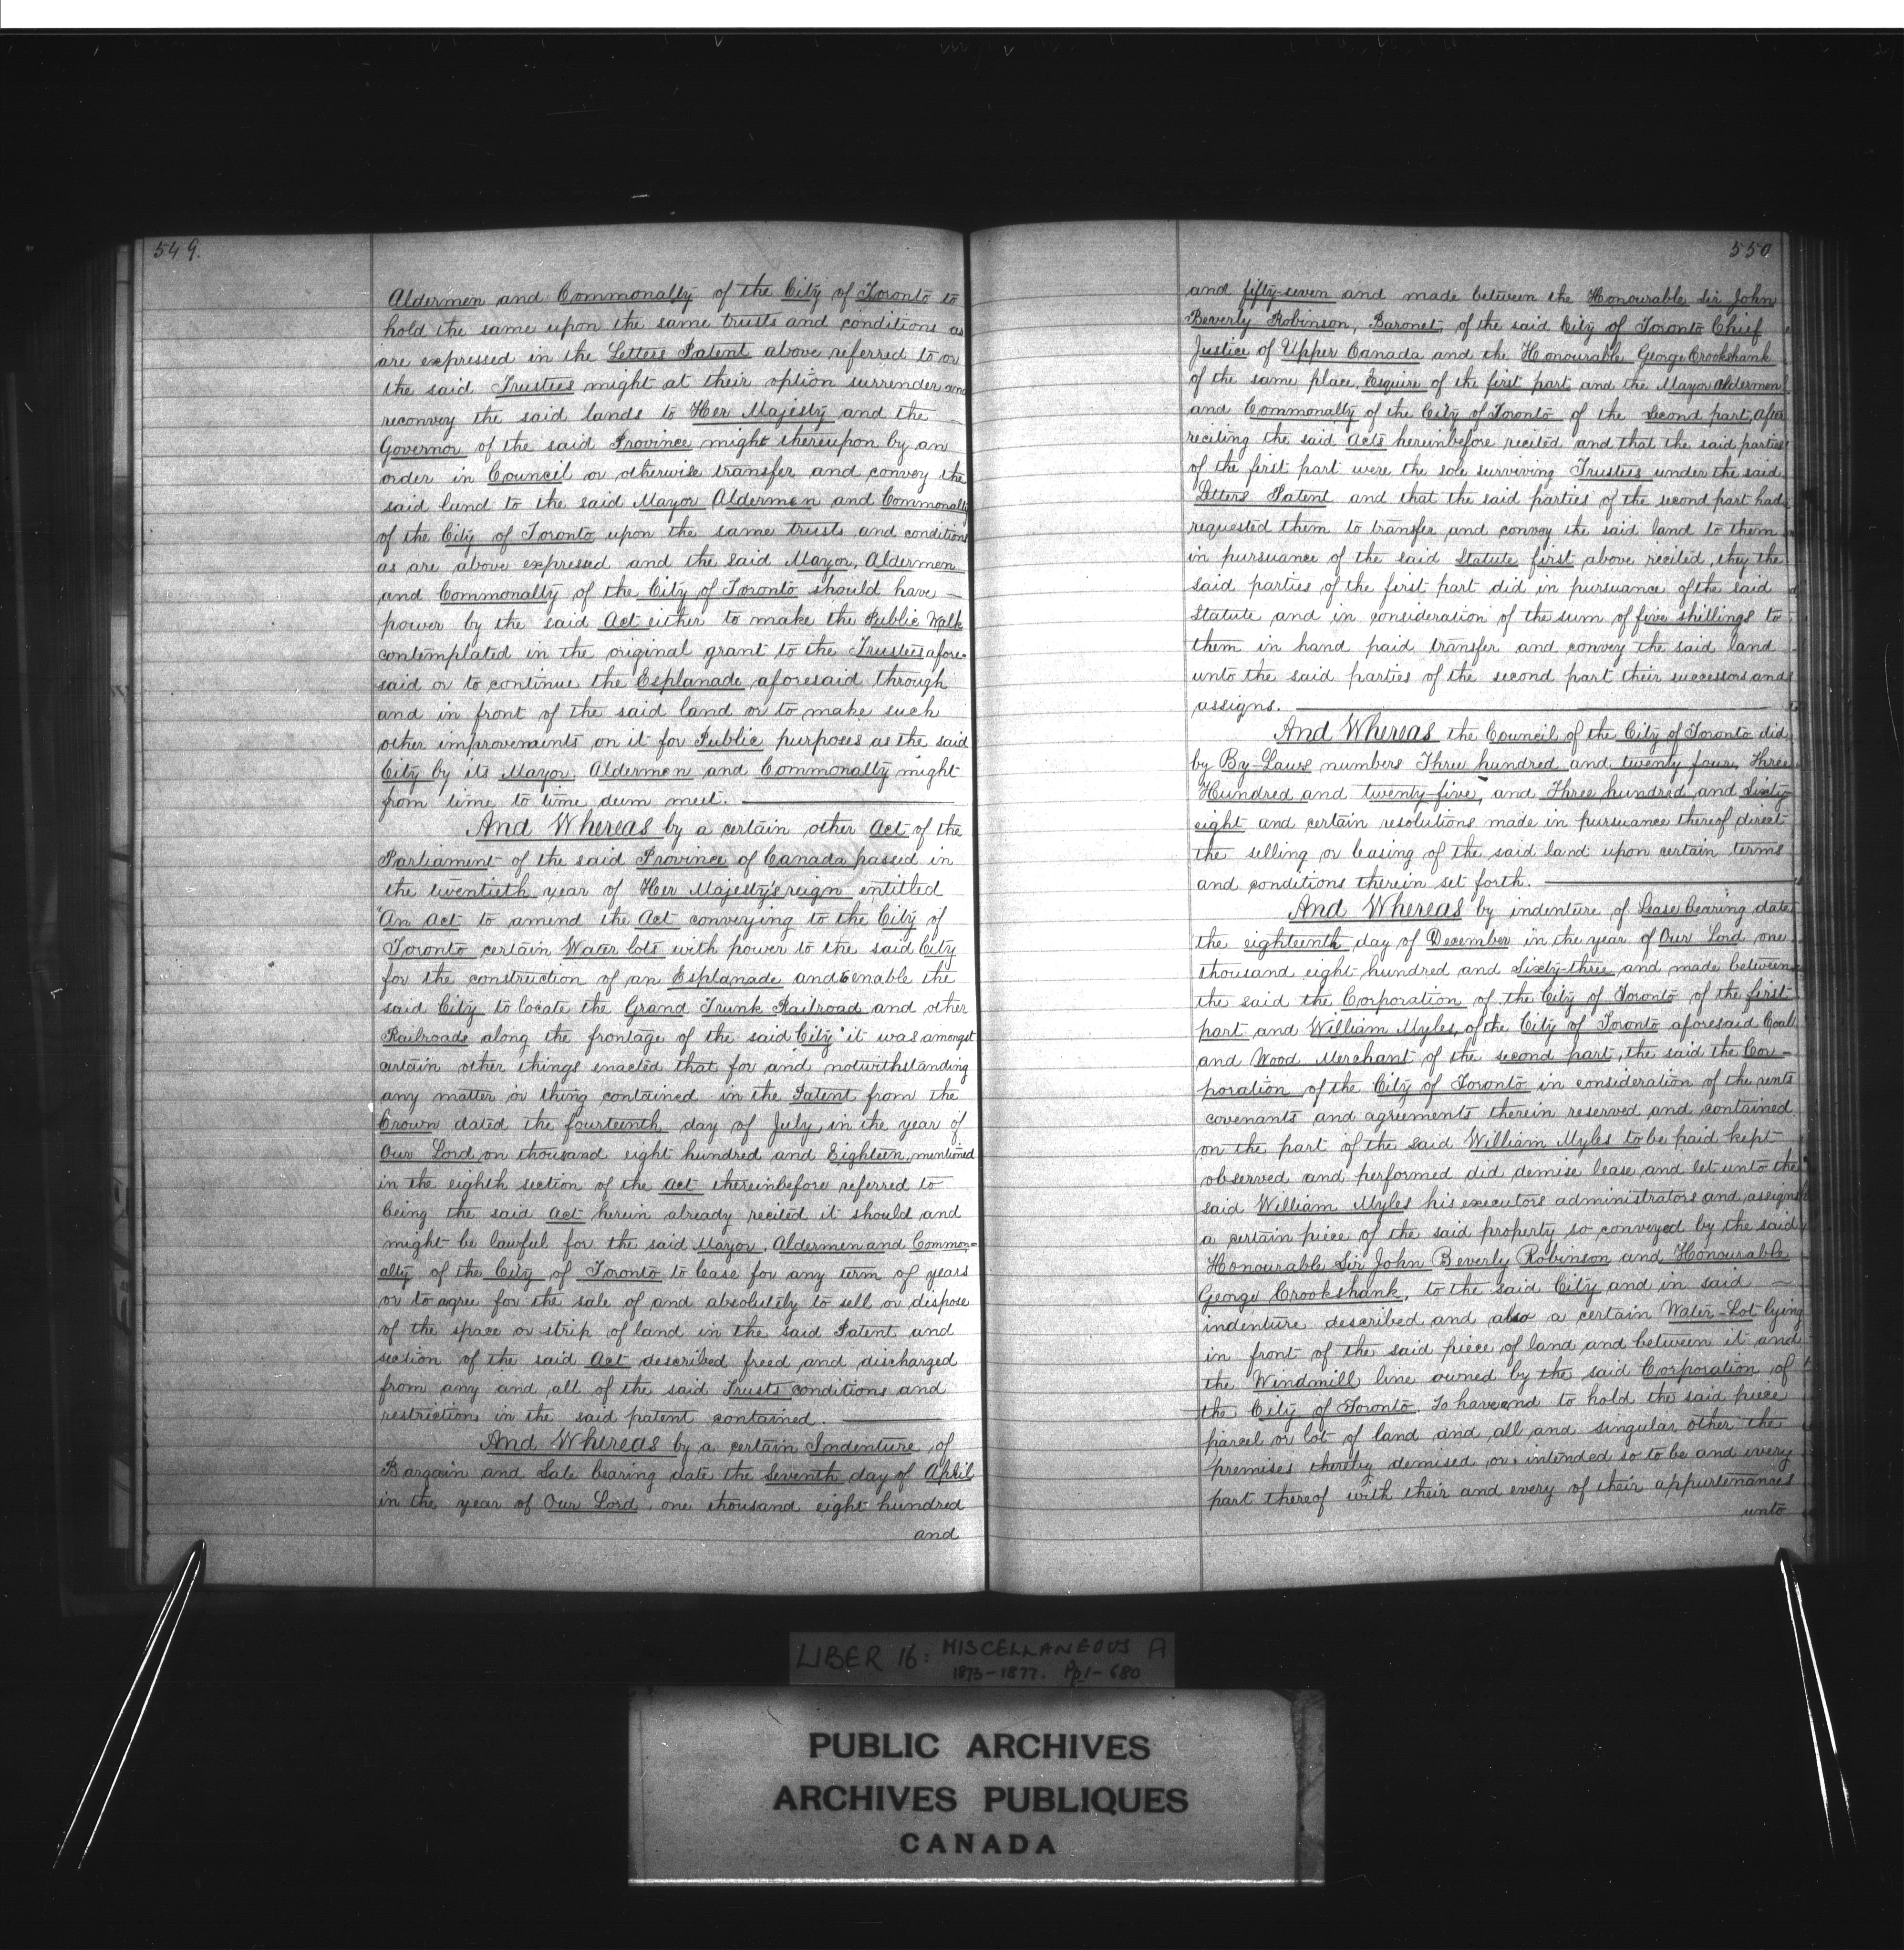 549.
Aldermen and Commonalty of the City of Toronto to
hold the same upon the same trusts and conditions as
are expressed in the Letters Patent above referred to or
the said Trustees might at their option surrender and
reconvey the said lands to Her Majesty and the
Governor of the said Province might thereupon by an
order in Council or otherwise transfer and convey the
said land to the said Mayor Aldermen and Commonalty
of the City of Toronto upon the same trusts and conditions
as are above expressed and the said Mayor, Aldermen
and Commonalty of the City of Toronto should have
power by the said Act either to make the Public Walk
contemplated in the original grant to the Trustees afore-
said or to continue the Esplanade aforesaid through
and in front of the said land or to make such
other improvements on it for Public purposes as the said
City by its Mayor, Aldermen and Commonalty might
from time to time deem meet.
And Whereas by a certain other Act of the
Parliament of the said Province of Canada passed in
the twentieth year of Her Majesty's reign entitled
"An Act to amend the Act conveying to the City of
Toronto certain Water lots with power to the said City
for the construction of an Esplanade and enable the
said City to locate the Grand Trunk Railroad and other
Railroads along the frontage of the said City" it was amongst
certain other things enacted that for and notwithstanding
any matter or thing contained in the Patent from the
Crown dated the fourteenth day of July in the year of
Our Lord on thousand eight hundred and Eighteen, mentioned
in the eighth section of the Act thereinbefore referred to
being the said Act herein already recited it should and
might be lawful for the said Mayor, Aldermen and Common-
alty of the City of Toronto to lease for any term of years
or to agree for the sale of and absolutely to sell or dispose
of the space or strip of land in the said Patent and
section of the said Act described freed and discharged
from any and all of the said Trusts conditions and
restrictions in the said patent contained.
And Whereas by a certain Indenture of
Bargain and Sale bearing date the Seventh day of April
in the year of Our Lord one thousand eight hundred
and
550
and fifty-seven and made between the Honourable Sir John
Beverly Robinson, Baronet, of the said City of Toronto Chief
Justice of Upper Canada and the Honourable George Crookshank
of the same place, Esquire of the first part and the Mayor Aldermen
and Commonalty of the City of Toronto of the Second part, after
reciting the said Acts hereinbefore recited and that the said parties
of the first part were the sole surviving Trustees under the said
Letters Patent and that the said parties of the second part had
requested them to transfer and convey the said land to them
in pursuance of the said Statute first above recited, they the
said parties of the first part did in pursuance of the said
Statute and in consideration of the sum of five shillings to
them in hand paid transfer and convey the said land
unto the said parties of the second part their successors and
assigns.
And Whereas the Council of the City of Toronto did
by By-Laws numbers Three hundred and twenty four, Three
Hundred and twenty-five, and Three hundred and Sixty
eight and certain resolutions made in pursuance thereof direct
the selling or leasing of the said land upon certain terms
and conditions therein set forth.
And Whereas by indenture of Lease bearing date
the eighteenth day of December in the year of Our Lord one
thousand eight hundred and Sixty-three and made between
the said the Corporation of the City of Toronto of the first
part and William Myles, of the City of Toronto aforesaid Coal
and Wood Merchant of the second part, the said the Cor-
poration of the City of Toronto in consideration of the rents
covenants and agreements therein reserved and contained
on the part of the said William Myles to be paid kept
observed and performed did demise lease and let unto the
said William Myles his executors administrators and assigns
a certain piece of the said property so conveyed by the said
Honourable Sir John Beverly Robinson and Honourable
George Crookshank, to the said City and in said
indenture described and also a certain Water-Lot lying
in front of the said piece of land and between it and
the Windmill line owned by the said Corporation of
the City of Toronto. To have and to hold the said piece
parcel or lot of land and all and singular other the
premises thereby demised or intended so to be and every
part thereof with their and every of their appurtenances
unto
LIBER 16: MISCELLANEOUS A
1873-1877. Pp 1-680
PUBLIC ARCHIVES
ARCHIVES PUBLIQUES
CANADA